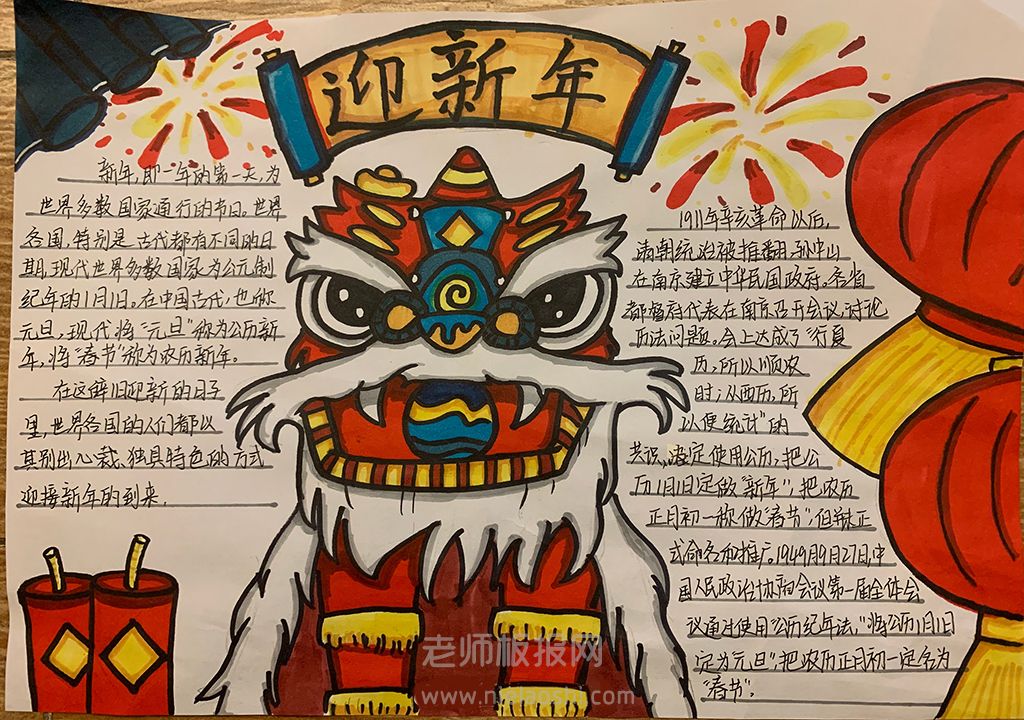 迎新年
新年,即一年的第一天,为
世界多数国家通行的节日。世界
各国,特别是古代都有不同的日
期,现代世界多数国家为公元制
纪年的1月1日。在中国古代,也称
元旦,现代将“元旦”称为公历新
年,将“春节”称为农历新年。
在这辞旧迎新的日子
里,世界各国的人们都以
其别出心裁、独具特色的方式
迎接新年的到来.
1911年辛亥革命以后,
清朝统治被推翻,孙中山
在南京建立中华民国政府。各省
都督府代表在南京召开会议,讨论
历法问题。会上达成了“行夏
历,所以顺农
时;从西历,所
以便统计”的
共识,决定使用公历,把公
历1月1日定做“新年”,把农历
正月初一称做“春节”,但并未正
式命名和推广。1949月9月27日,中
国人民政治协商会议第一届全体会
议通过使用“公历纪年法,”将公历1月1日
定为元旦”,把农历正月初一定名为
“春节”.
老师板报网
www.nselaoshi.com